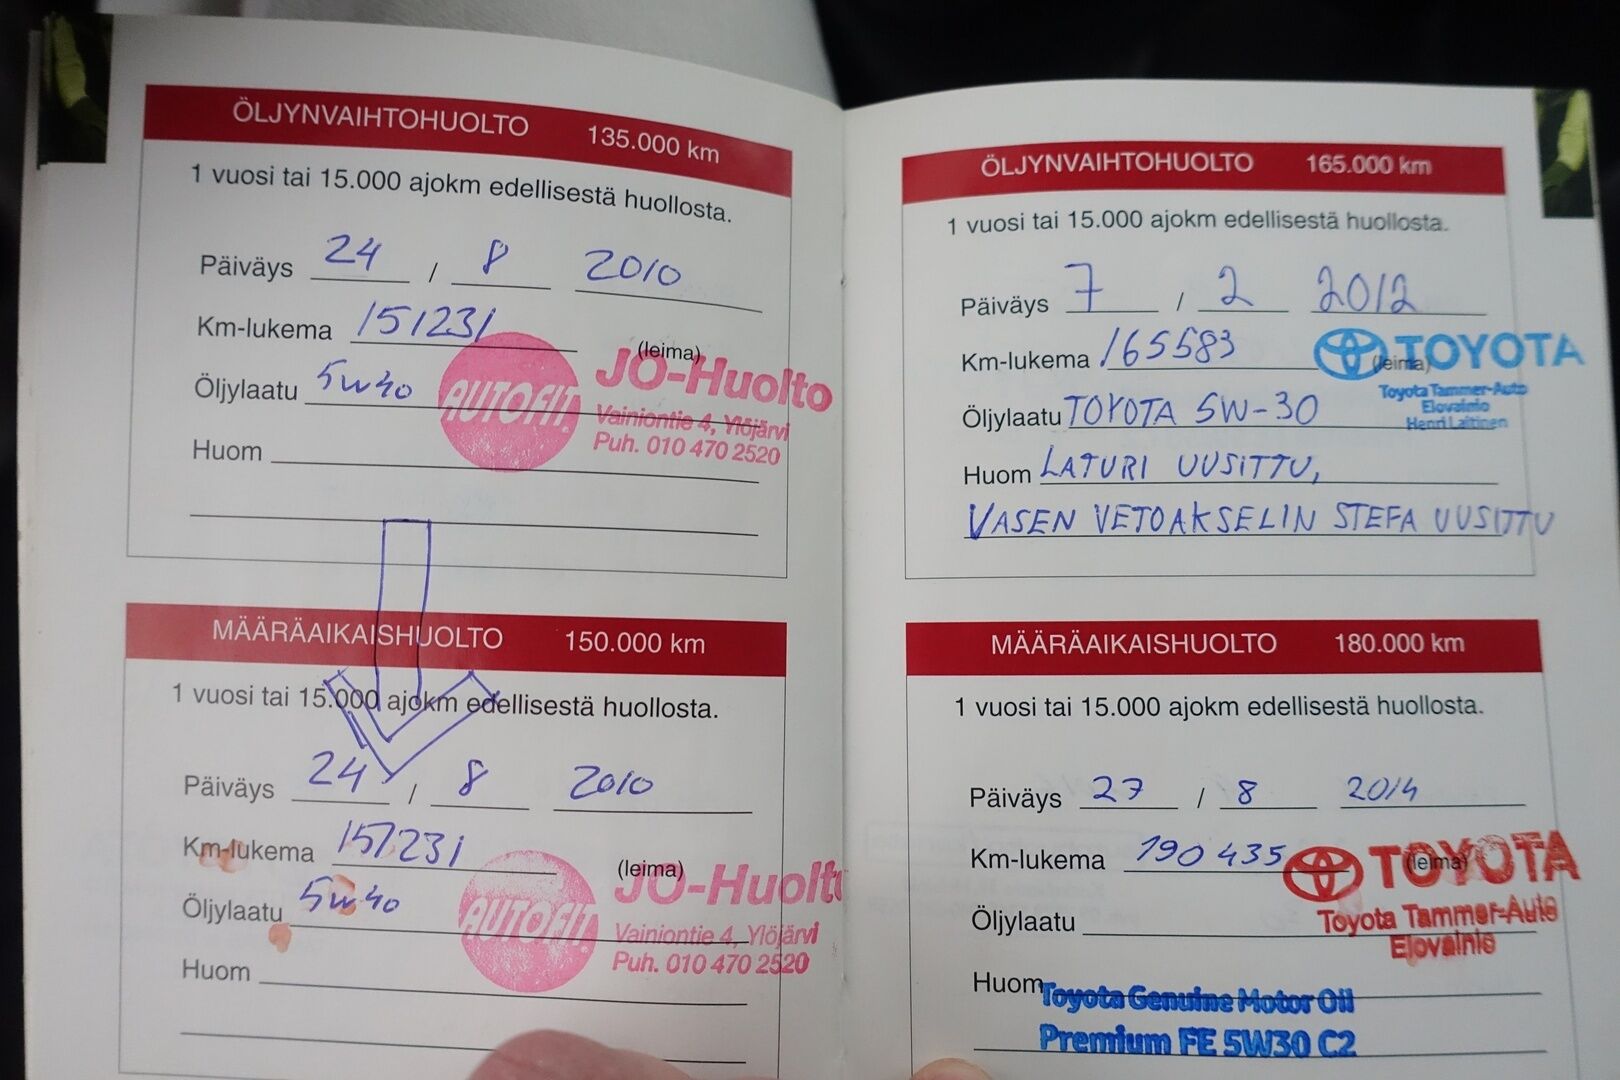 ÖLJYNVAIHTOHUOLTO 135.000 km
1 vuosi tai 15.000 ajokm edellisestä huollosta.
Päiväys 24 / 8 2010
Km-lukema 151231
(leima)
Öljylaatu 5W40
AUTOFIT.
JO-Huolto
Vainiontie 4, Ylöjärvi
Puh. 010 470 2520
Huom
MÄÄRÄAIKAISHUOLTO 150.000 km
1 vuosi tai 15.000 ajokm edellisestä huollosta.
Päiväys 24 / 8 2010
Km-lukema 151231
(leima)
Öljylaatu 5W40
AUTOFIT.
JO-Huolto
Vainiontie 4, Ylöjärvi
Puh. 010 470 2520
Huom
ÖLJYNVAIHTOHUOLTO 165.000 km
1 vuosi tai 15.000 ajokm edellisestä huollosta.
Päiväys 7 / 2 2012
Km-lukema 165583
(leima)
TOYOTA
Toyota Tammer-Auto
Elovainio
Henri Laitinen
Öljylaatu TOYOTA 5W-30
Huom LATURI UUSITTU,
VASEN VETOAKSELIN STEFA UUSITTU
MÄÄRÄAIKAISHUOLTO 180.000 km
1 vuosi tai 15.000 ajokm edellisestä huollosta.
Päiväys 27 / 8 2014
Km-lukema 190435
(leima)
TOYOTA
Toyota Tammer-Auto
Elovainio
Öljylaatu
Huom
Toyota Genuine Motor Oil
Premium FE 5W30 C2